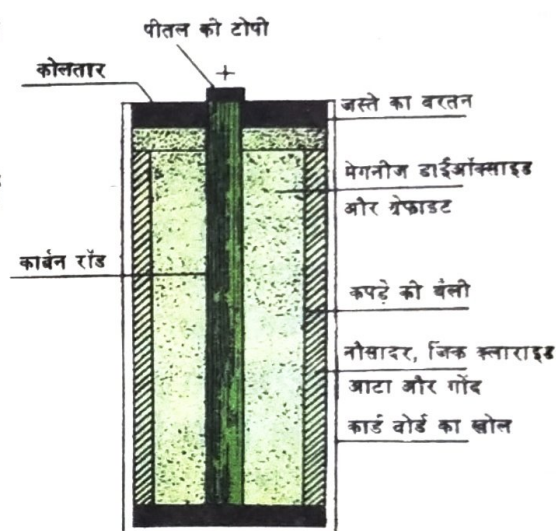 पीतल की टोपी
+
कोलतार
जस्ते का बरतन
मेगनीज डाईऑक्साइड
और ग्रेफाइट
कार्बन रॉड
कपड़े की थैली
नौसादर, जिंक क्लाराइड
आटा और गोंद
कार्ड बोर्ड का खोल